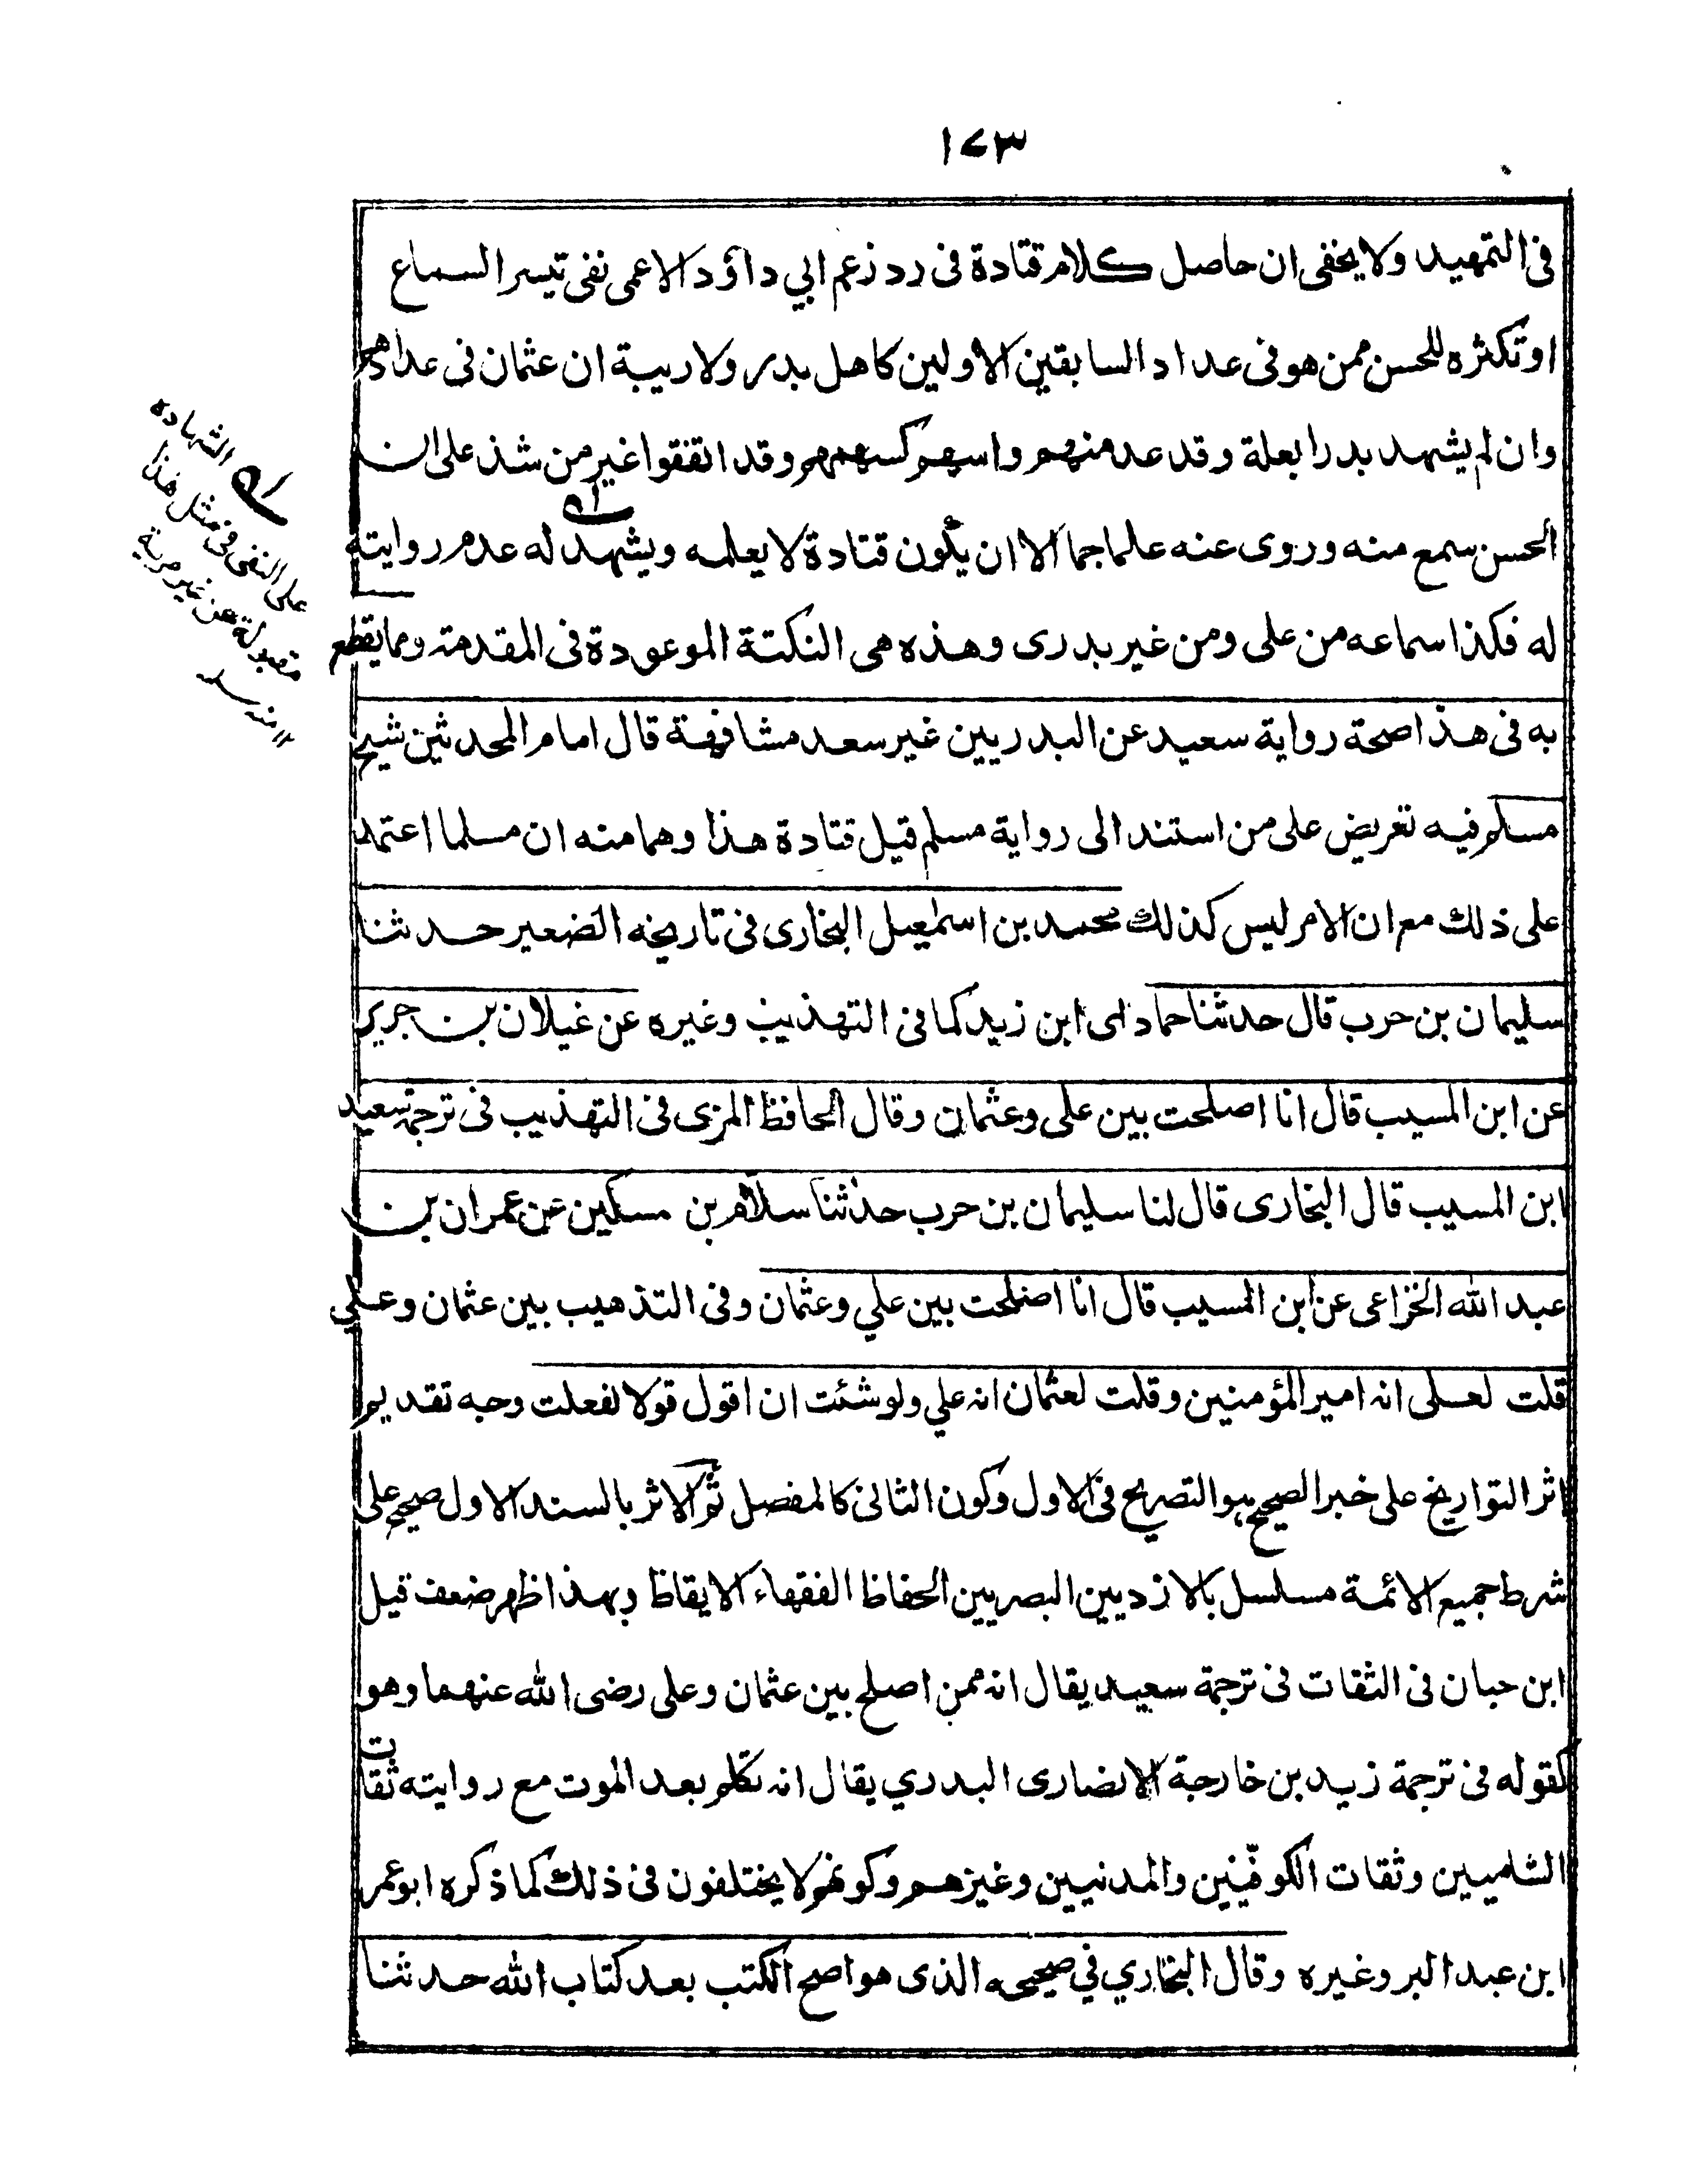 ١٧٣
فى التمهيد ولا يخفى ان حاصل كلام قتادة فى رد زعم ابي داؤد الاعمى نفى تيسر السماع
او تكثره للحسن ممن هو فى عداد السابقين الاولين كاهل بدر ولا ريبة ان عثمان فى عدادهم
وان لم يشهد بدرا بعلة وقد عد منهم واسهم كسهمهم وقد اتفقوا غير من شذ على ان
الحسن سمع منه وروى عنه علما جما الا ان يكون قتادة لا يعلمه ويشهد له عدم روايته
له فكذا سماعه من على ومن غير بدرى وهذه هى النكتة الموعودة فى المقدمة ومما يقطع
به فى هذا صحة رواية سعيد عن البدريين غير سعد مشافهة قال امام المحدثين شيخ
مسلم فيه تعريض على من استند الى رواية مسلم قيل قتادة هذا وهما منه ان مسلما اعتمد
على ذلك مع ان الامر ليس كذلك محمد بن اسمٰعيل البخارى فى تاريخه الصغير حدثنا
سليمان بن حرب قال حدثنا حماد اى ابن زيد كما فى التهذيب وغيره عن غيلان بن جرير
عن ابن المسيب قال انا اصلحت بين على وعثمان وقال الحافظ المزى فى التهذيب فى ترجمة سعيد
ابن المسيب قال البخارى قال لنا سليمان بن حرب حدثنا سلام بن مسكين عن عمران بن
عبد الله الخزاعى عن ابن المسيب قال انا اصلحت بين علي وعثمان وفى التذهيب بين عثمان وعلي
قلت لعلى انه امير المؤمنين وقلت لعثمان انه علي ولو شئت ان اقول قولا لفعلت وجه تقديم
اثر التواريخ على خبر الصحيح هو التصريح فى الاول وكون الثانى كالمفصل ثم الاثر بالسند الاول صحيح على
شرط جميع الائمة مسلسل بالازديين البصريين الحفاظ الفقهاء الايقاظ وبهذا ظهر ضعف قيل
ابن حبان فى الثقات فى ترجمة سعيد يقال انه ممن اصلح بين عثمان وعلى رضى الله عنهما وهو
كقوله فى ترجمة زيد بن خارجة الانصارى البدري يقال انه تكلم بعد الموت مع روايته ثقات
الشاميين وثقات الكوفيين والمدنيين وغيرهم وكونهم لا يختلفون فى ذلك كما ذكره ابو عمر
ابن عبد البر وغيره وقال البخاري في صحيحه الذى هو اصح الكتب بعد كتاب الله حدثنا
الشهادة
على النفى فى مثل هذا
مقبولة من غير مرية
١٢ منه